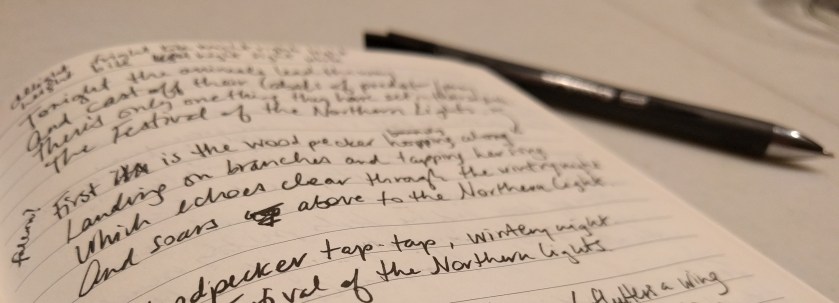 Tonight the animals lead the way
And cast off their labels of predator
There's only one thing they have set
The Festival of the Northern Lights
First is the woodpecker hopping along
Landing on branches and tapping her song
Which echoes clear through the wintry
And soars above to the Northern Lights
dpecker tap-tap, wintery night
tival of the Northern Lights
flutters a wing